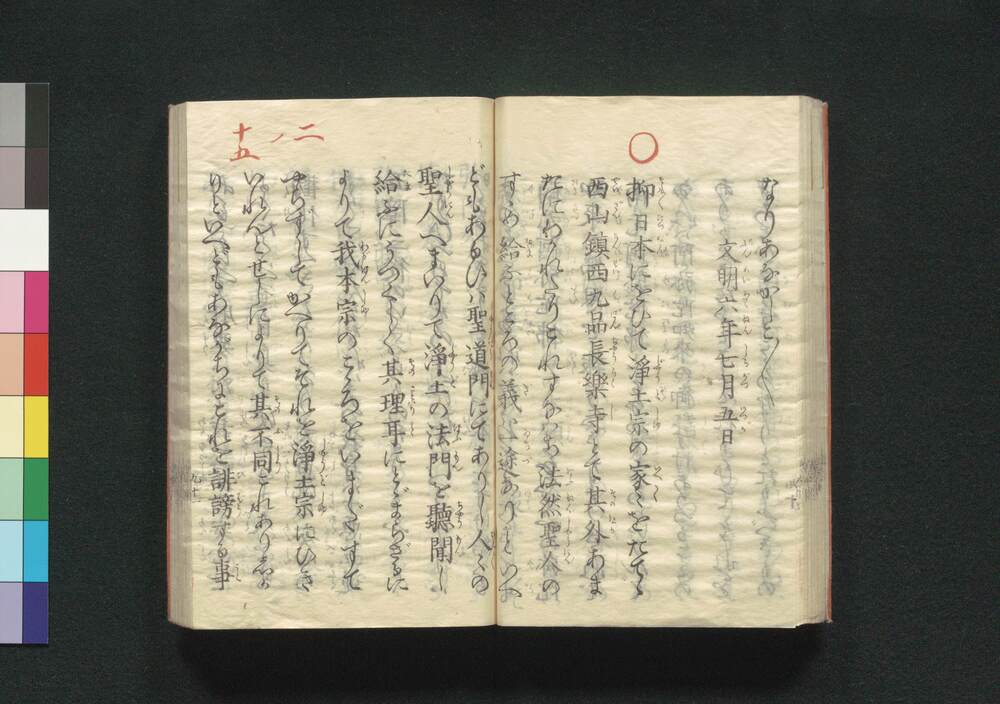 なりあなかしこ〱
文明六年七月五日
〇
抑日本にをひて浄土宗の家々をたてゝ
西山鎮西九品長樂寺とて其外あま
たにわかれたりこれすなはち法然聖人の
すゝめ給ふところの義は一途なりといへ
二ノ十五
どもあるひは聖道門にてありし人々の
聖人へまいりて浄土の法門を聽聞し
給ふにうつくしく其理耳にとゞまらざるに
よりて我本宗のこゝろをいまだすて
やらずしてかへりてそれを浄土宗にひき
いれんとせしによりて其不同これありしか
りといへどもあながちにこれを誹謗する事